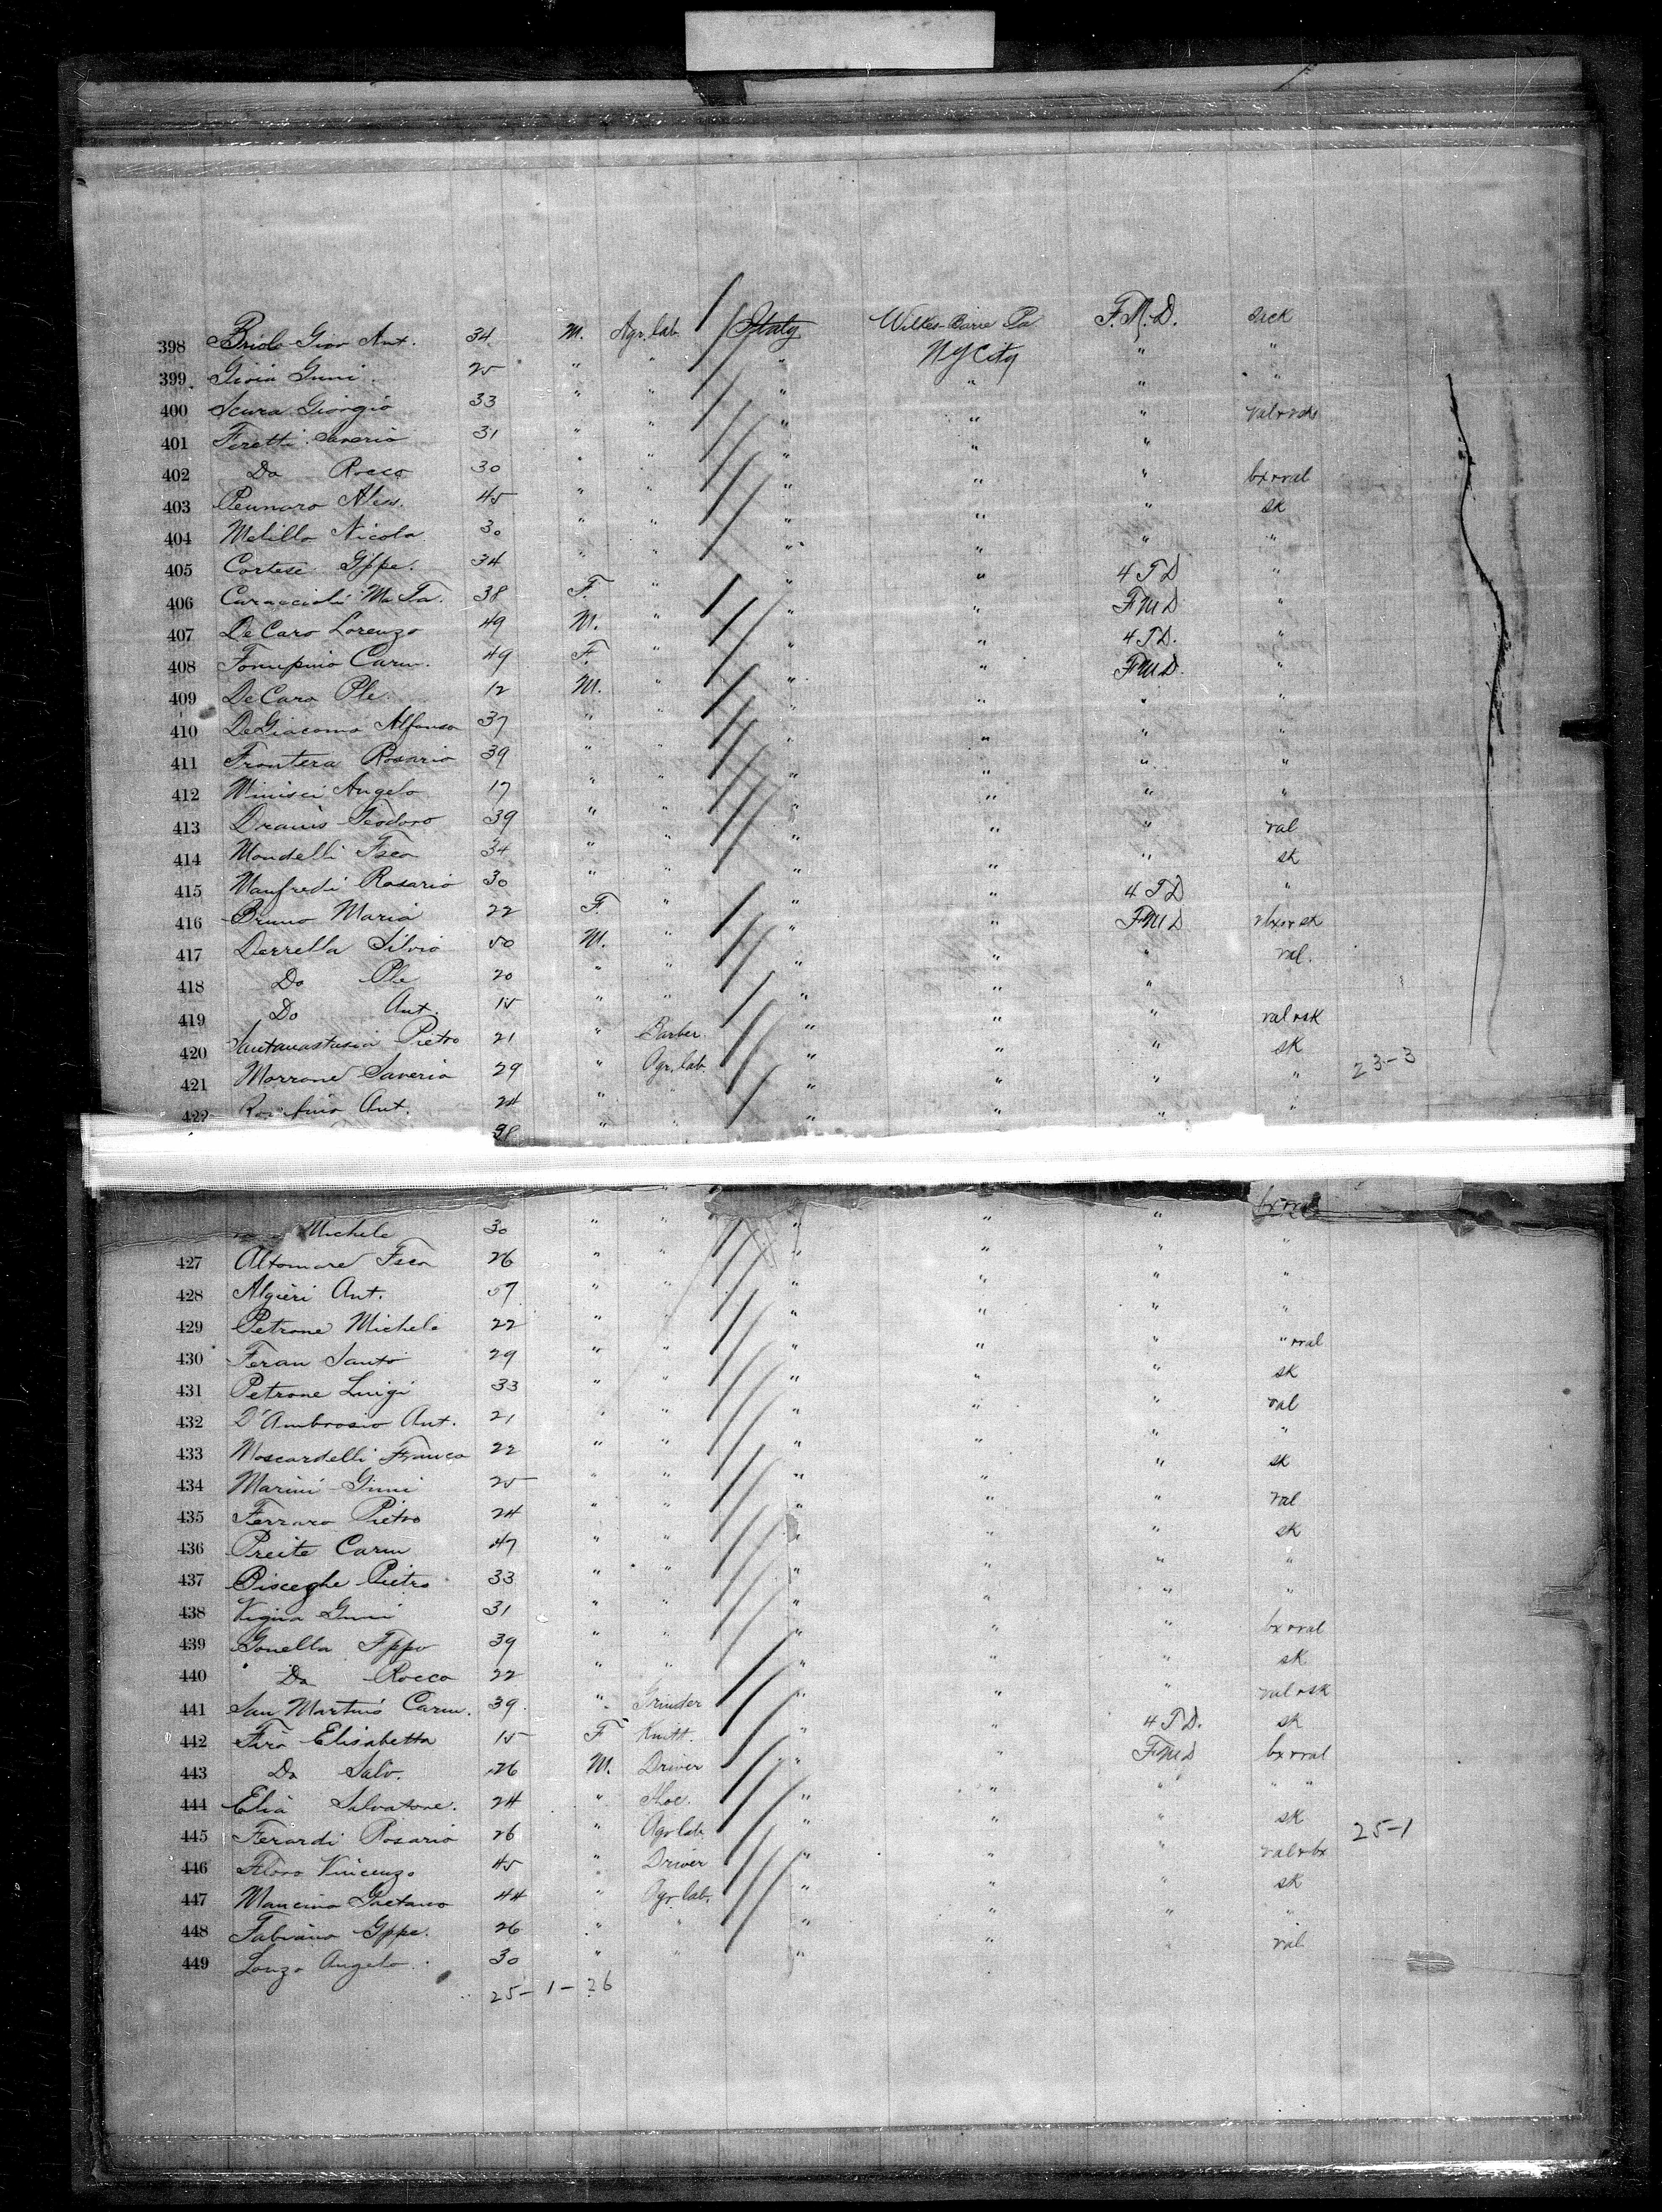 398 Gior Ant. 34 M. Agr. lab. Italy Wilkes-Barre Pa F.M.D. sack
399 Gioia Gnni. 25 " " " NY City " "
400 Scura Giorgio 33 " " " " " "
401 Feretti Saverio 31 " " " " " val & sk
402 Do Rocco 30 " " " " "
403 Pennaro Aless. 45 " " " " " bx & val
404 Melillo Nicola 30 " " " " " sk
405 Cortese Gppe. 34 " " " " " "
406 Caraccioli Ma Ta. 38 F. " " " 4 T D "
407 De Caro Lorenzo 49 M. " " " F M D "
408 Carm. 49 F. " " " 4 T D. "
409 De Caro Ple 12 M. " " " F M D. "
410 De Giacomo Alfonso 37 " " " " " "
411 Frontera Rosario 39 " " " " " "
412 Minisci Angelo 17 " " " " " "
413 Dramis Teodoro 39 " " " " " "
414 Mondelli Fsco 34 " " " " " val
415 Manfredi Rosario 30 " " " " " sk
416 Bruno Maria 22 F. " " " 4 T D "
417 Derrella Silvio 50 M. " " " F M D bx & sk
418 Do Ple 20 " " " " " val.
419 Do Ant. 15 " " " " "
420 Santanastasia Pietro 21 " Barber " " " val & sk
421 Morrone Saverio 29 " Agr. lab. " " " sk 23-3
422 Ant. 24 " " " " " "
38 " " " "
Michele 30 " " " " " bx & val
427 Altomare Fsco 26 " " " " " "
428 Algieri Ant. 57 " " " " " "
429 Petrone Michele 22 " " " " " "
430 Feran Santo 29 " " " " " " & val
431 Petrone Luigi 33 " " " " " sk
432 D'Ambrosio Ant. 21 " " " " " val
433 Moscardelli Franco 22 " " " " " "
434 Marini Gnni 25 " " " " " sk
435 Ferraro Pietro 24 " " " " " val
436 Preite Carm 47 " " " " " sk
437 Bisceglie Pietro 33 " " " " " "
438 Vigna Gnni 31 " " " " " "
439 Gonella Fppo 39 " " " " " bx & val
440 Do Rocco 22 " " " " " sk
441 San Martino Carm. 39 " Grinder " " " val & sk
442 Firo Elisabetta 15 F Knitt. " " 4 T D. sk
443 Do Salv. 26 M. Driver " " F M D bx & val
444 Elia Salvatore. 24 " Shoe. " " " " "
445 Ferardi Rosario 26 " Agr lab " " " sk 25-1
446 Floro Vincenzo 45 " Driver " " " val & bx
447 Mancino Gaetano 44 " Agr lab. " " " sk
448 Fabiano Gppe. 26 " " " " " "
449 Longo Angelo 30 " " " " " val
25-1-26